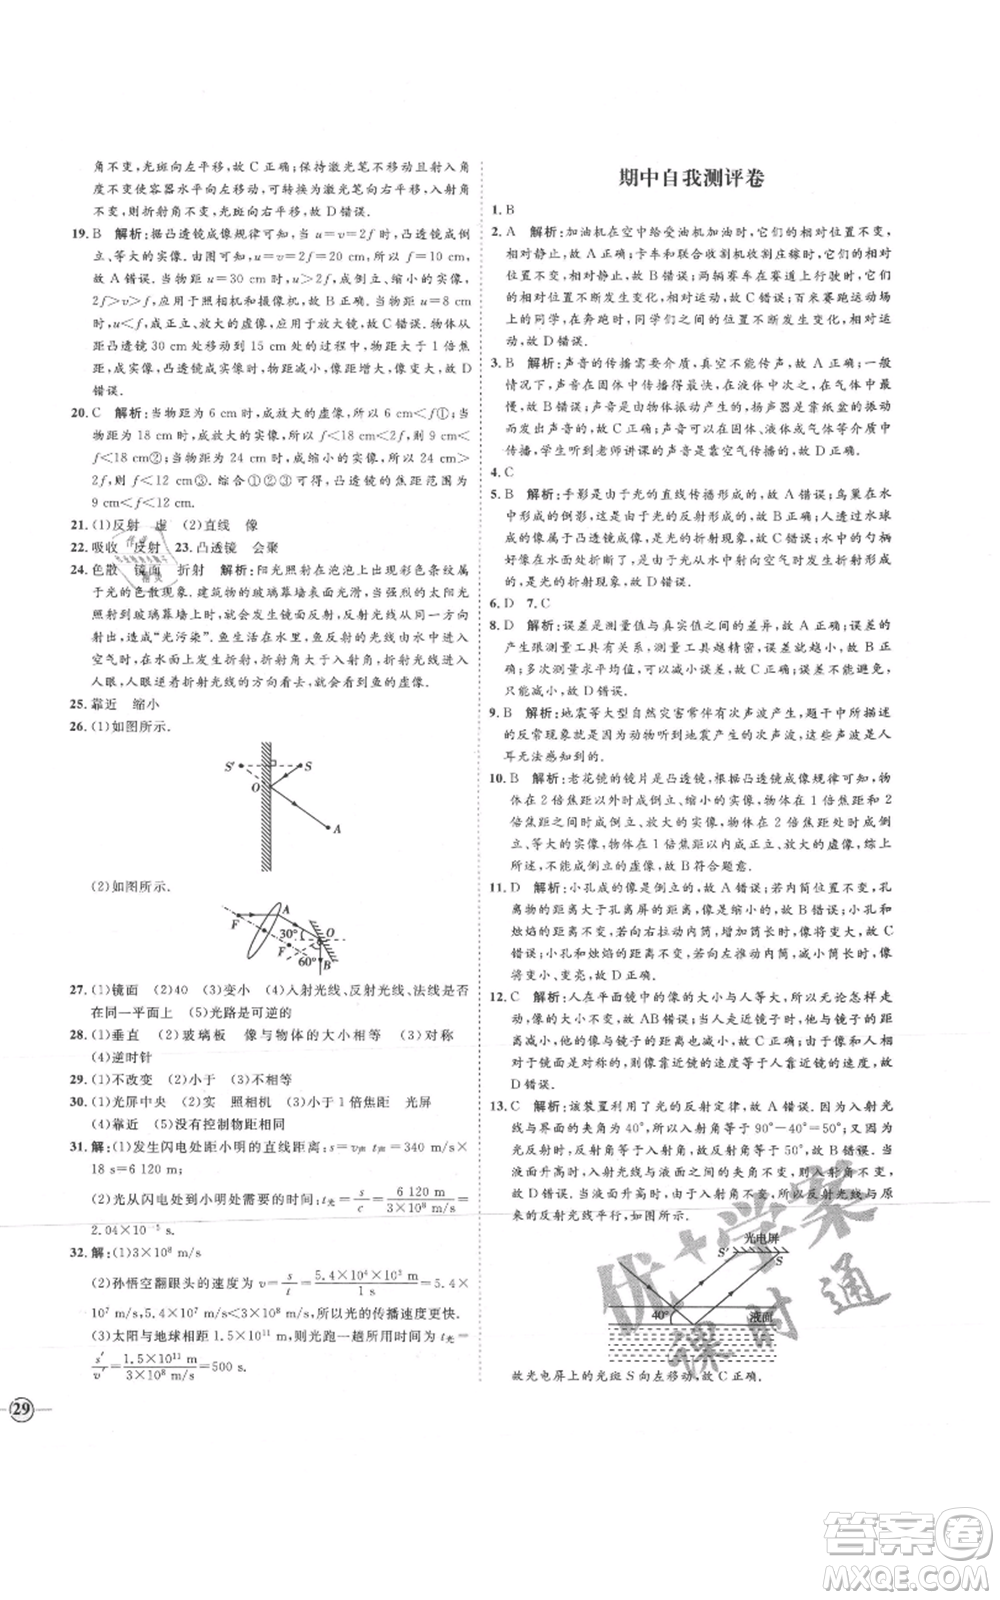 角不变,光斑向左平移,故C正确;保持激光笔不移动而入射角
度不变使容器水平向左移动,可转换为激光笔向右平移,入射角
不变,则折射角不变,光斑向右平移,故D错误.
19. B 解析:据凸透镜成像规律可知,当u=v=2f时,成倒
立、等大的实像,由图可知,u=v=2f=20 cm,所以f=10 cm,
故A错误.当物距u=30 cm时,u>2f,成倒立、缩小的实像,
2f>v>f,应用于照相机和摄像机,故B正确.当物距u=8 cm
时,u<f,成正立、放大的虚像,应用于放大镜,故C错误.把物体
从距凸透镜30 cm处移动到15 cm处的过程中,物距大于1倍焦
距,成的是实像,物距减小,像距增大,像变大,像距增大,故D错
误.
20. C 解析:当物距为6 cm时,成放大的虚像,则6 cm<f①;当物
距为18 cm时,成放大的实像,则f<18 cm<2f,则9 cm<
f<18 cm②;当物距为24 cm时,成缩小的实像,则24 cm>
2f,则f<12 cm③.综合①②③可得,凸透镜的焦距范围是
9 cm<f<12 cm.
21. (1)反射 虚 (2)直线 像
22. 吸收 反射 23. 凸透镜 会聚
24. 色散 镜面 折射 解析:阳光照射在泡泡上出现彩色条纹属
于光的色散现象.建筑物的玻璃幕墙表面光滑,强烈的太阳光照
射在玻璃幕墙上,发生镜面反射,反射光线射向同一方向,光线
太强,造成“光污染”.鱼生活在水里,鱼反射的光线由水中进入
空气时,在水面处发生折射,折射角大于入射角,折射光线进入
人眼,人眼逆着折射光线的方向看去,看到的是鱼的虚像.
25. 靠近 缩小
26. (1)如图所示.
S′ S
O
A
(2)如图所示.
A
F 30° O
F 60° B
27. (1)镜面 (2)40 (3)变小 (4)入射光线、反射光线、法线是否
在同一平面上 (5)光路是可逆的
28. (1)垂直 (2)玻璃板 像与物体的大小相等 (3)对称
(4)逆时针
29. (1)不改变 (2)小于 (3)不相等
30. (1)光屏中央 (2)实 照相机 (3)小于1倍焦距 光屏
(4)靠近 (5)没有控制物距相同
31. 解:(1)发生闪电处距小明的直线距离:s=v声t声=340 m/s×
18 s=6 120 m.
(2)光从闪电处到小明处需要的时间:t光=s/c=6 120 m/3×10⁸ m/s=
2.04×10⁻⁵ s.
32. 解:(1)3×10⁸ m/s
(2)孙悟空翻跟头的速度为v=s/t=5.4×10⁷ m/1 s=5.4×
10⁷ m/s,5.4×10⁷ m/s<3×10⁸ m/s,所以光的传播速度更快.
(3)太阳与地球相距1.5×10¹¹ m,所以光跑一趟所需的时间t光=
s′/v′=1.5×10¹¹ m/3×10⁸ m/s=500 s.
29
期中自我测评卷
1. B
2. A 解析:加油机在空中给受油机加油时,它们的位置不变,
相对静止,故A正确;卡车和联合收割机收割庄稼时,它们的位置
不变,相对静止,故B错误;两辆赛车在赛道上行驶时,它们的
位置不断发生变化,相对运动,故C错误;百米赛跑冲过终点
时,在奔跑时,同学们之间的位置不断发生变化,相对运
动,故D错误.
3. B 解析:声音的传播需要介质,真空不能传声,故A正确;一般
情况下,声音在固体中传播最快,在液体中次之,在气体中最
慢,故B错误;声音是由物体振动产生的,扬声器是靠纸盆的振
动发出声音的,故C正确;声音可以在固体、液体和气体等介质中
传播,学生听到老师讲课的声音是通过空气传播的,故D正确.
4. C
5. B 解析:手影是由于光的直线传播形成的,故A错误;鸟巢在水
中形成的倒影,是由于光的反射形成的,故B正确;透过水球
成的像属于凸透镜成像,是光的折射现象,故C错误;水中的勺柄
好像在水面处折断了,是由于光从水中通过水面射向空气中形成
的,是光的折射现象,故D错误.
6. D 7. C
8. D 解析:误差是测量值与真实值之间的差异,故A错误;误差的
产生跟测量工具有关系,测量工具越精确,误差越小,故B错
误;多次测量求平均值,可以减小误差,故C错误;误差不能避免,
只能减小,故D错误.
9. B 解析:地震等大型自然灾害常伴有次声波产生,题干中描述
的反常现象就是因为动物听到地震产生的次声波,这些声音是人
耳无法感知到的.
10. B 解析:老花镜的镜片是凸透镜,根据凸透镜成像规律可知,
物体在2倍焦距以外时成倒立、缩小的实像;物体在1倍焦距和2倍
焦距之间时成倒立、放大的实像;物体在1倍焦距以内时成正立、放大的虚像,综上
所述,不能成倒立的虚像,故B符合题意.
11. D 解析:小孔成的像是倒立的实像,故A错误;若内筒位置不变,孔
离物的距离大于孔离屏的距离,像是缩小的,故B错误;小孔和
烛焰的位置不变,向右拉动内筒,增大筒长时,像将变大,故C
错误;小孔和烛焰的位置不变,向左推动内筒,减小筒长时,像
将变小、变亮,故D正确.
12. C 解析:人在平面镜中的像的大小与人等大,无论人怎样走
动,像的大小都不变,故AB错误;当人远离镜子时,像与镜子的距
离也变大,像与镜子的距离和人与镜子的距离相等,故C正确;像与物
关于镜面是对称的,则像靠近镜的速度等于人靠近镜的速度,故
D错误.
13. C 解析:该装置利用了光的反射定律,故A错误;因为入射光
线与液面的夹角为40°,所以入射角为90°−40°=50°,又因为在
光反射时,反射角等于入射角,所以反射角等于50°,故B错误;
液面升高时,入射光线与液面的夹角不变,入射角不变,故C
正确;当液面升高时,由于入射角不变,所以反射光线与原
来的反射光线平行,如图所示.
光电屏
S′ S
40° 液面
故光电屏上的光斑S向左移动,故D错误.
优+学案
课时通
答案圈
MXQE.COM